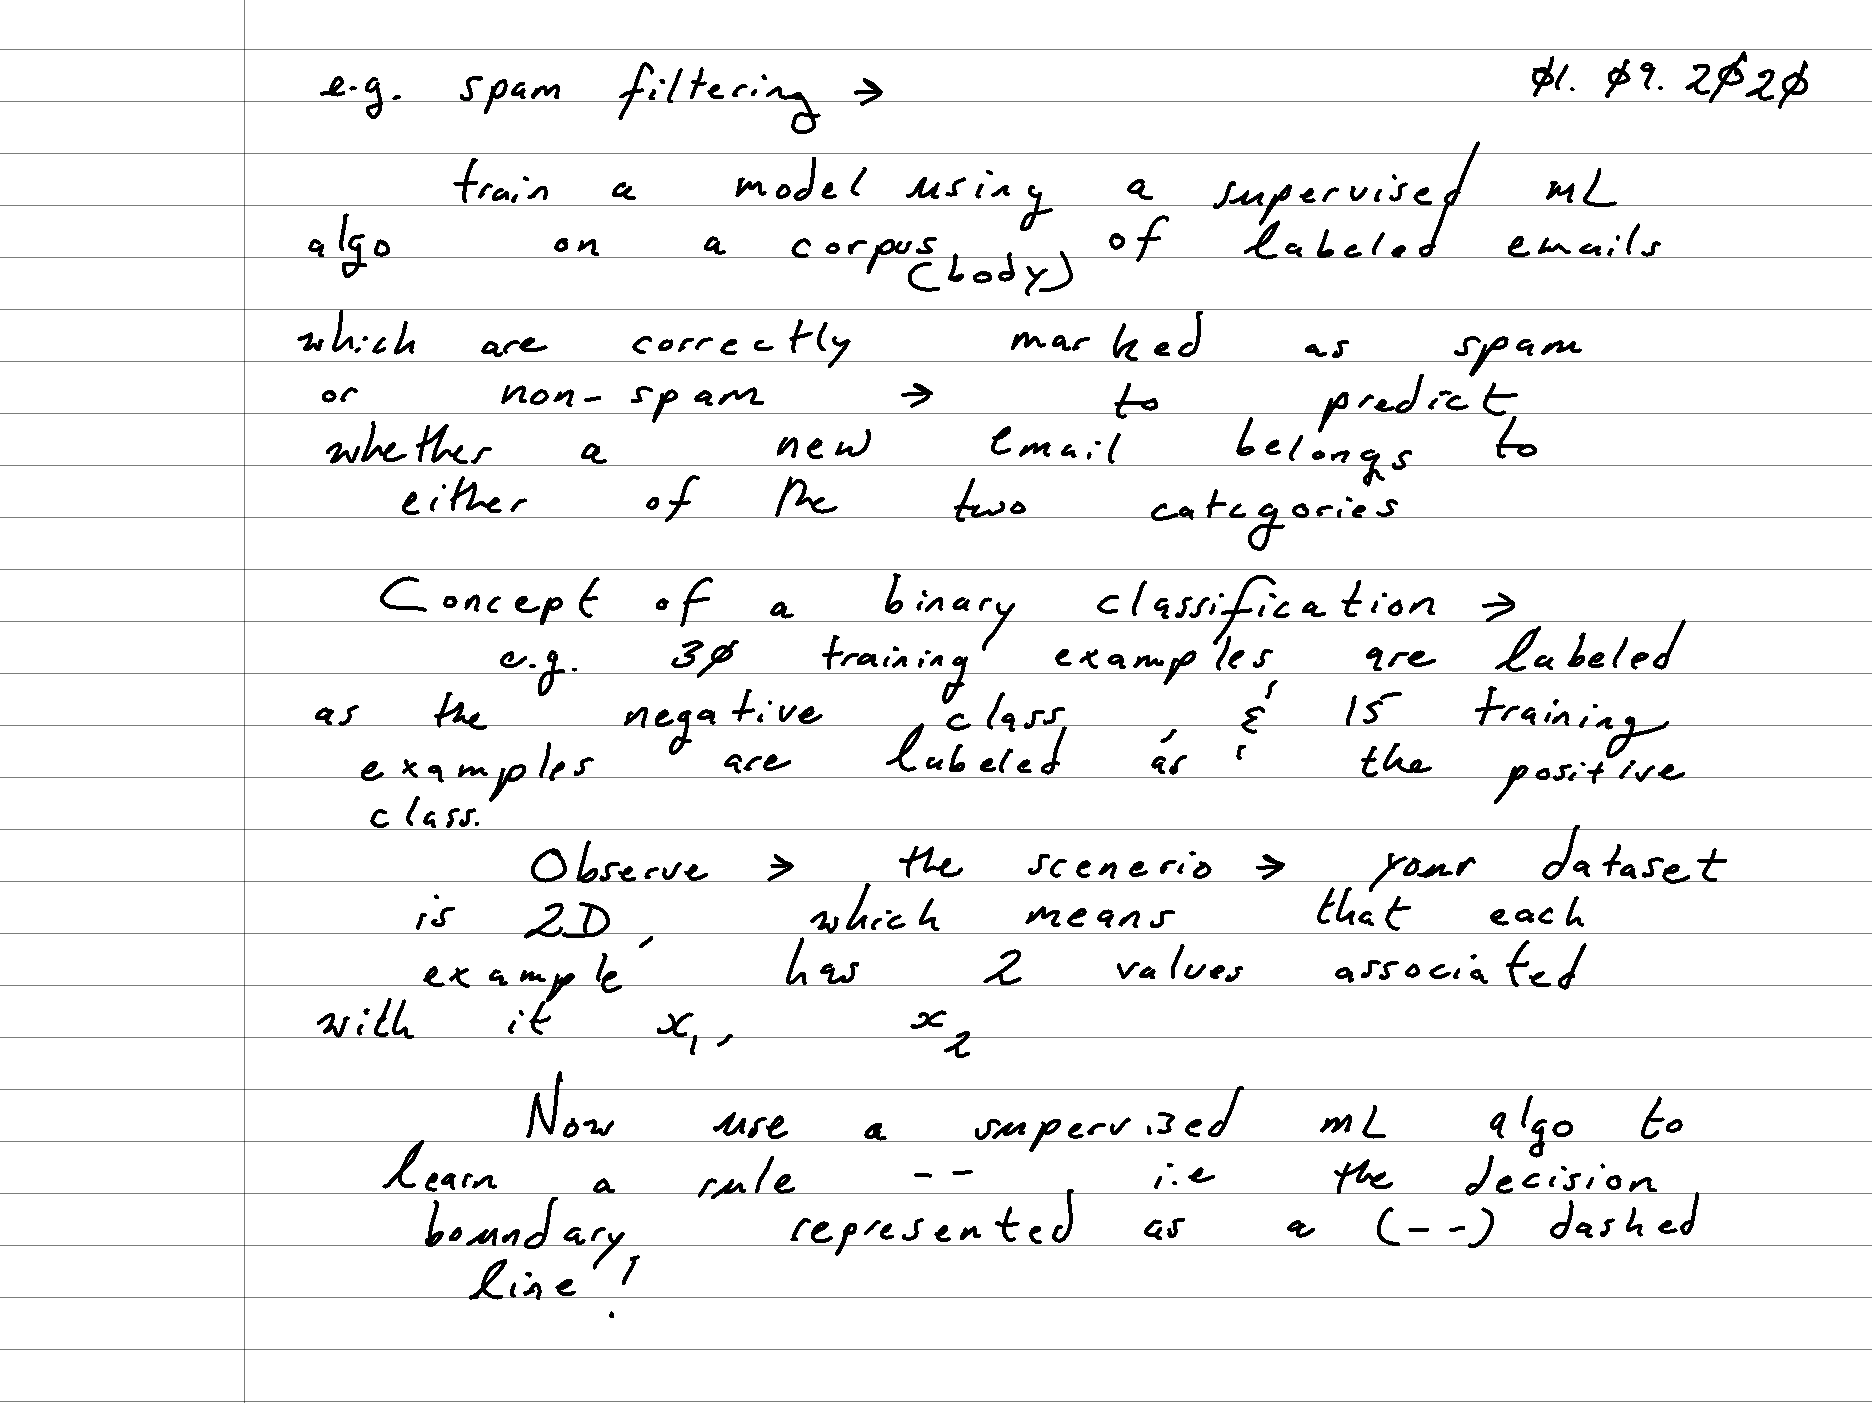 e.g. spam filtering → 01. 09. 2020
train a model using a supervised mL
algo on a corpus of labeled emails
(body)
which are correctly marked as spam
or non-spam → to predict
whether a new email belongs to
either of the two categories
Concept of a binary classification →
e.g. 30 training examples are labeled
as the negative class, & 15 training
examples are labeled as the positive
class.
Observe > the scenerio → your dataset
is 2D, which means that each
example has 2 values associated
with it x₁, x₂
Now use a supervised mL algo to
learn a rule -- i.e the decision
boundary represented as a (--) dashed
line!